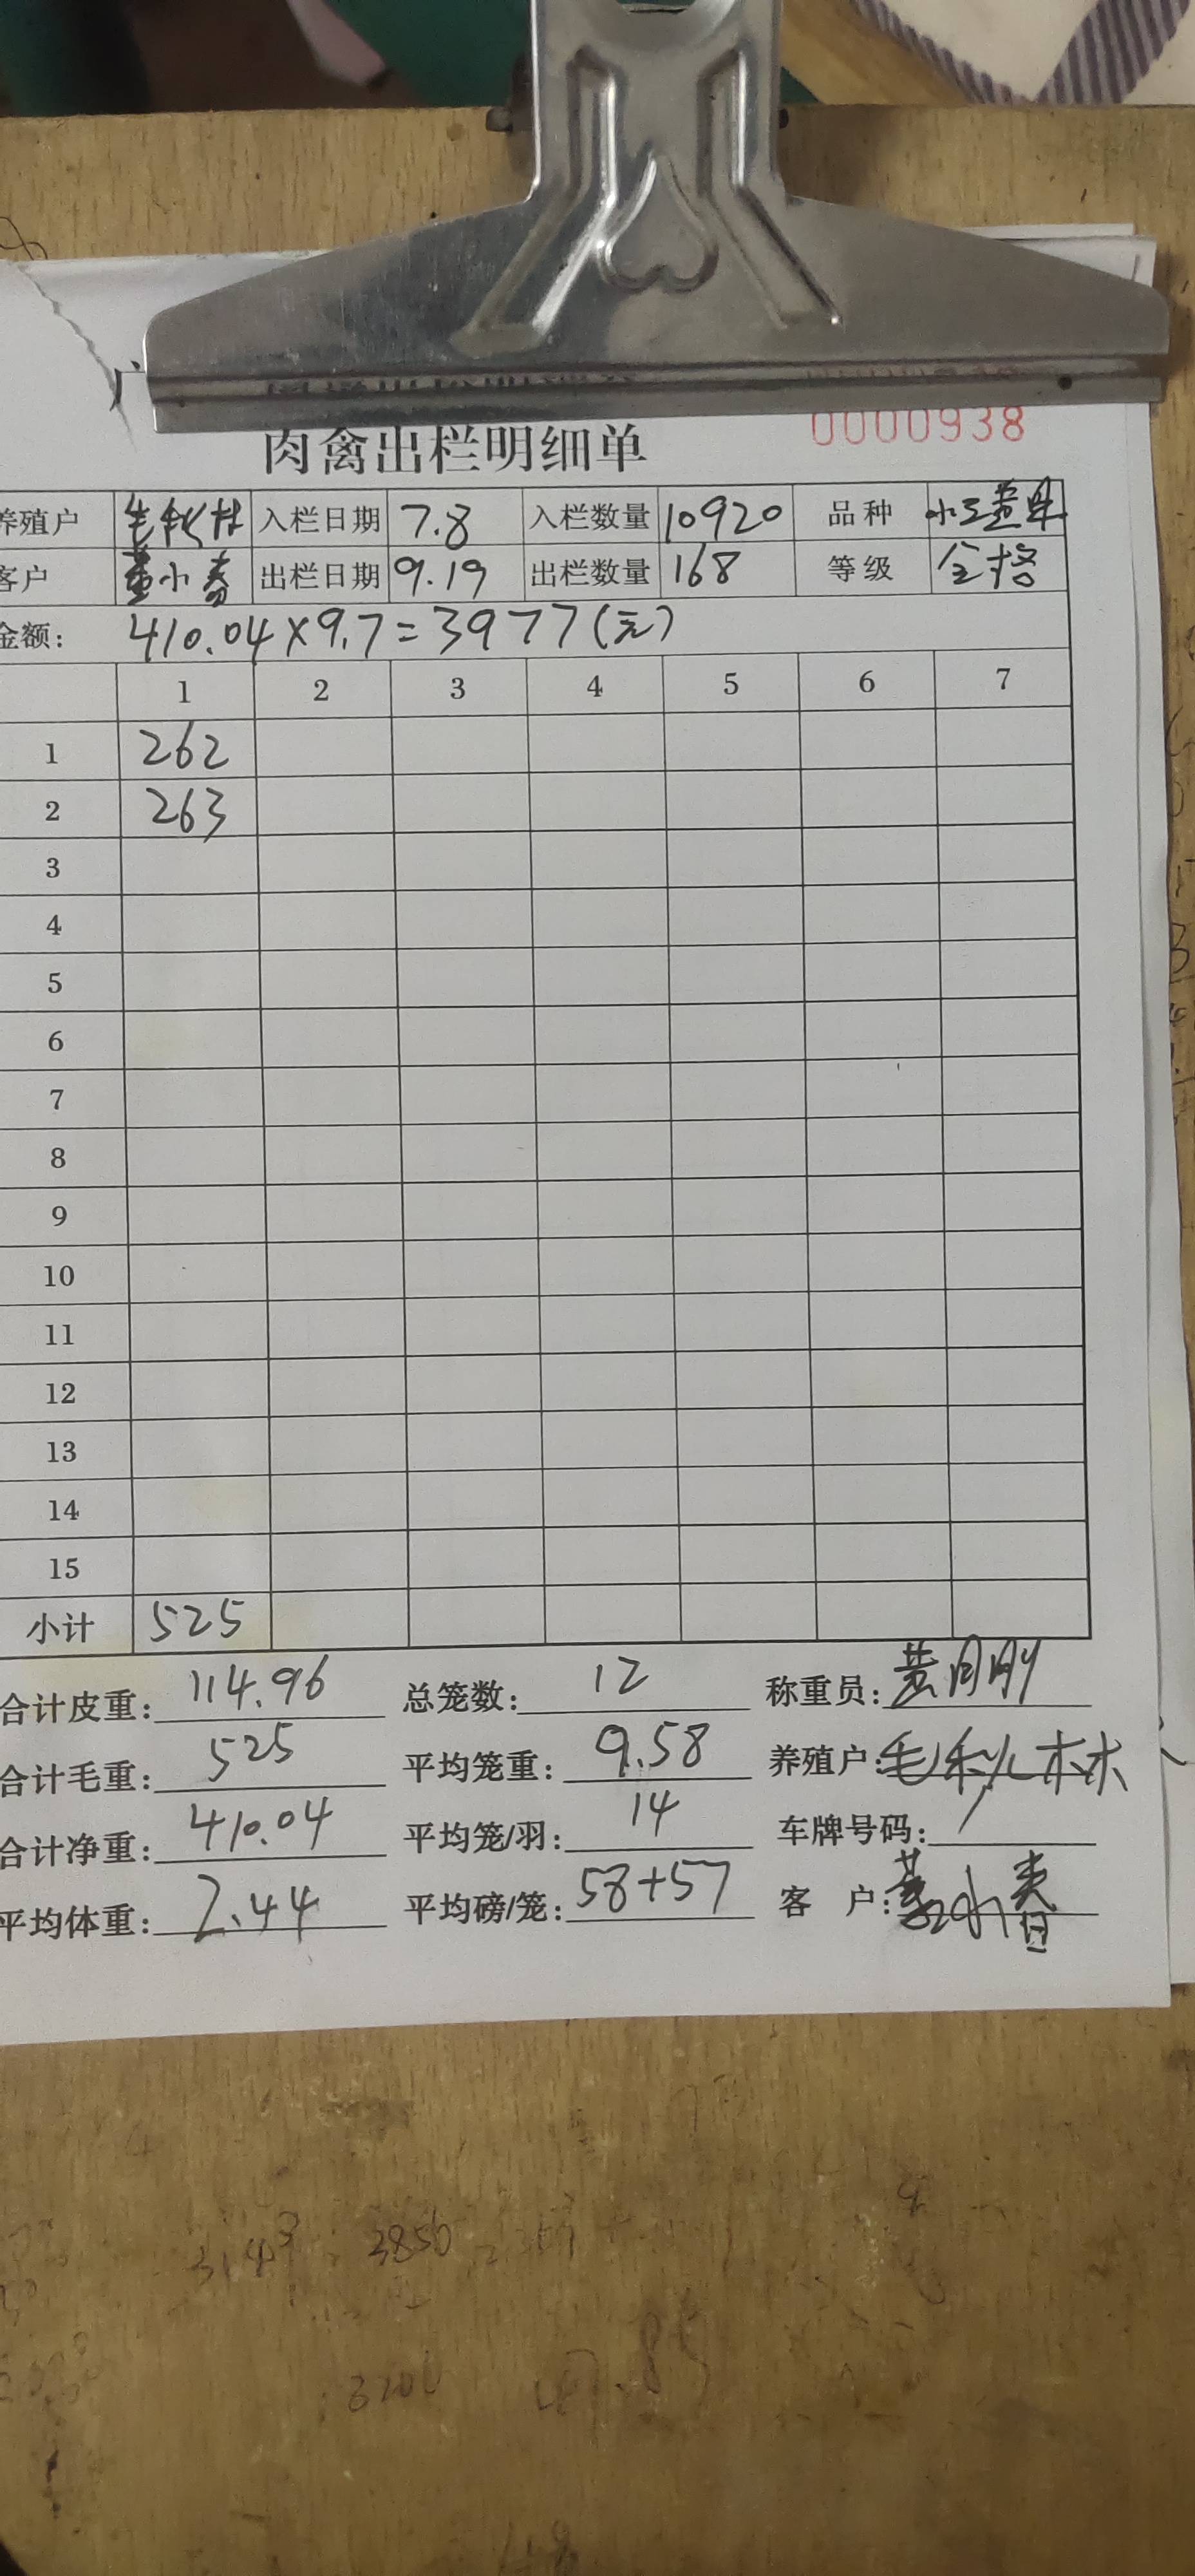 广
0000938
肉禽出栏明细单
养殖户 毛秋林 入栏日期 7.8 入栏数量 10920 品种 小三黄
客户 董小春 出栏日期 9.19 出栏数量 168 等级 合格
金额: 410.04×9.7=3977(元)
1 2 3 4 5 6 7
1 262
2 263
3
4
5
6
7
8
9
10
11
12
13
14
15
小计 525
合计皮重: 114.96 总笼数: 12 称重员: 黄
合计毛重: 525 平均笼重: 9.58 养殖户: 毛秋林
合计净重: 410.04 平均笼/羽: 14 车牌号码: /
平均体重: 2.44 平均磅/笼: 58+57 客 户: 董小春
3850